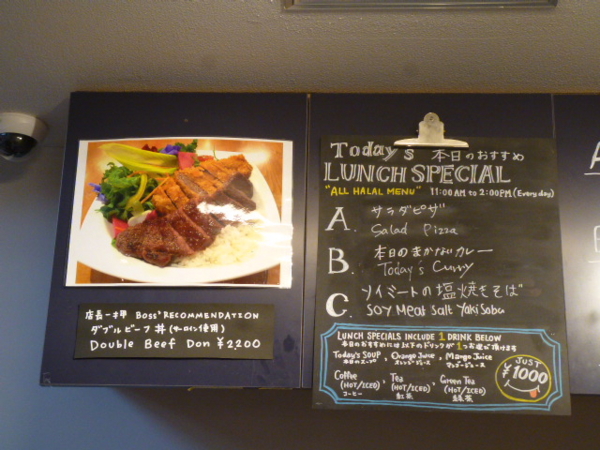 Today's 本日のおすすめ
LUNCH SPECIAL
"ALL HALAL MENU" 11:00AM to 2:00PM (Everyday)
A. サラダピザ
Salad Pizza
B. 本日のまかないカレー
Today's Curry
C. ソイミートの塩焼きそば
SOY Meat Salt Yaki Soba
LUNCH SPECIALS INCLUDE 1 DRINK BELOW
本日のおすすめには以下のドリンクが1つお選び頂けます
Today's SOUP, Orange Juice, Mango Juice
本日のスープ オレンジジュース マンゴージュース
Coffee Tea Green Tea
(HOT/ICED) (HOT/ICED) (HOT/ICED)
コーヒー 紅茶 緑茶
JUST
¥1000
店長一押 BOSS' RECOMMENDATION
ダブルビーフ丼 (サーロイン使用)
Double Beef Don ¥2,200